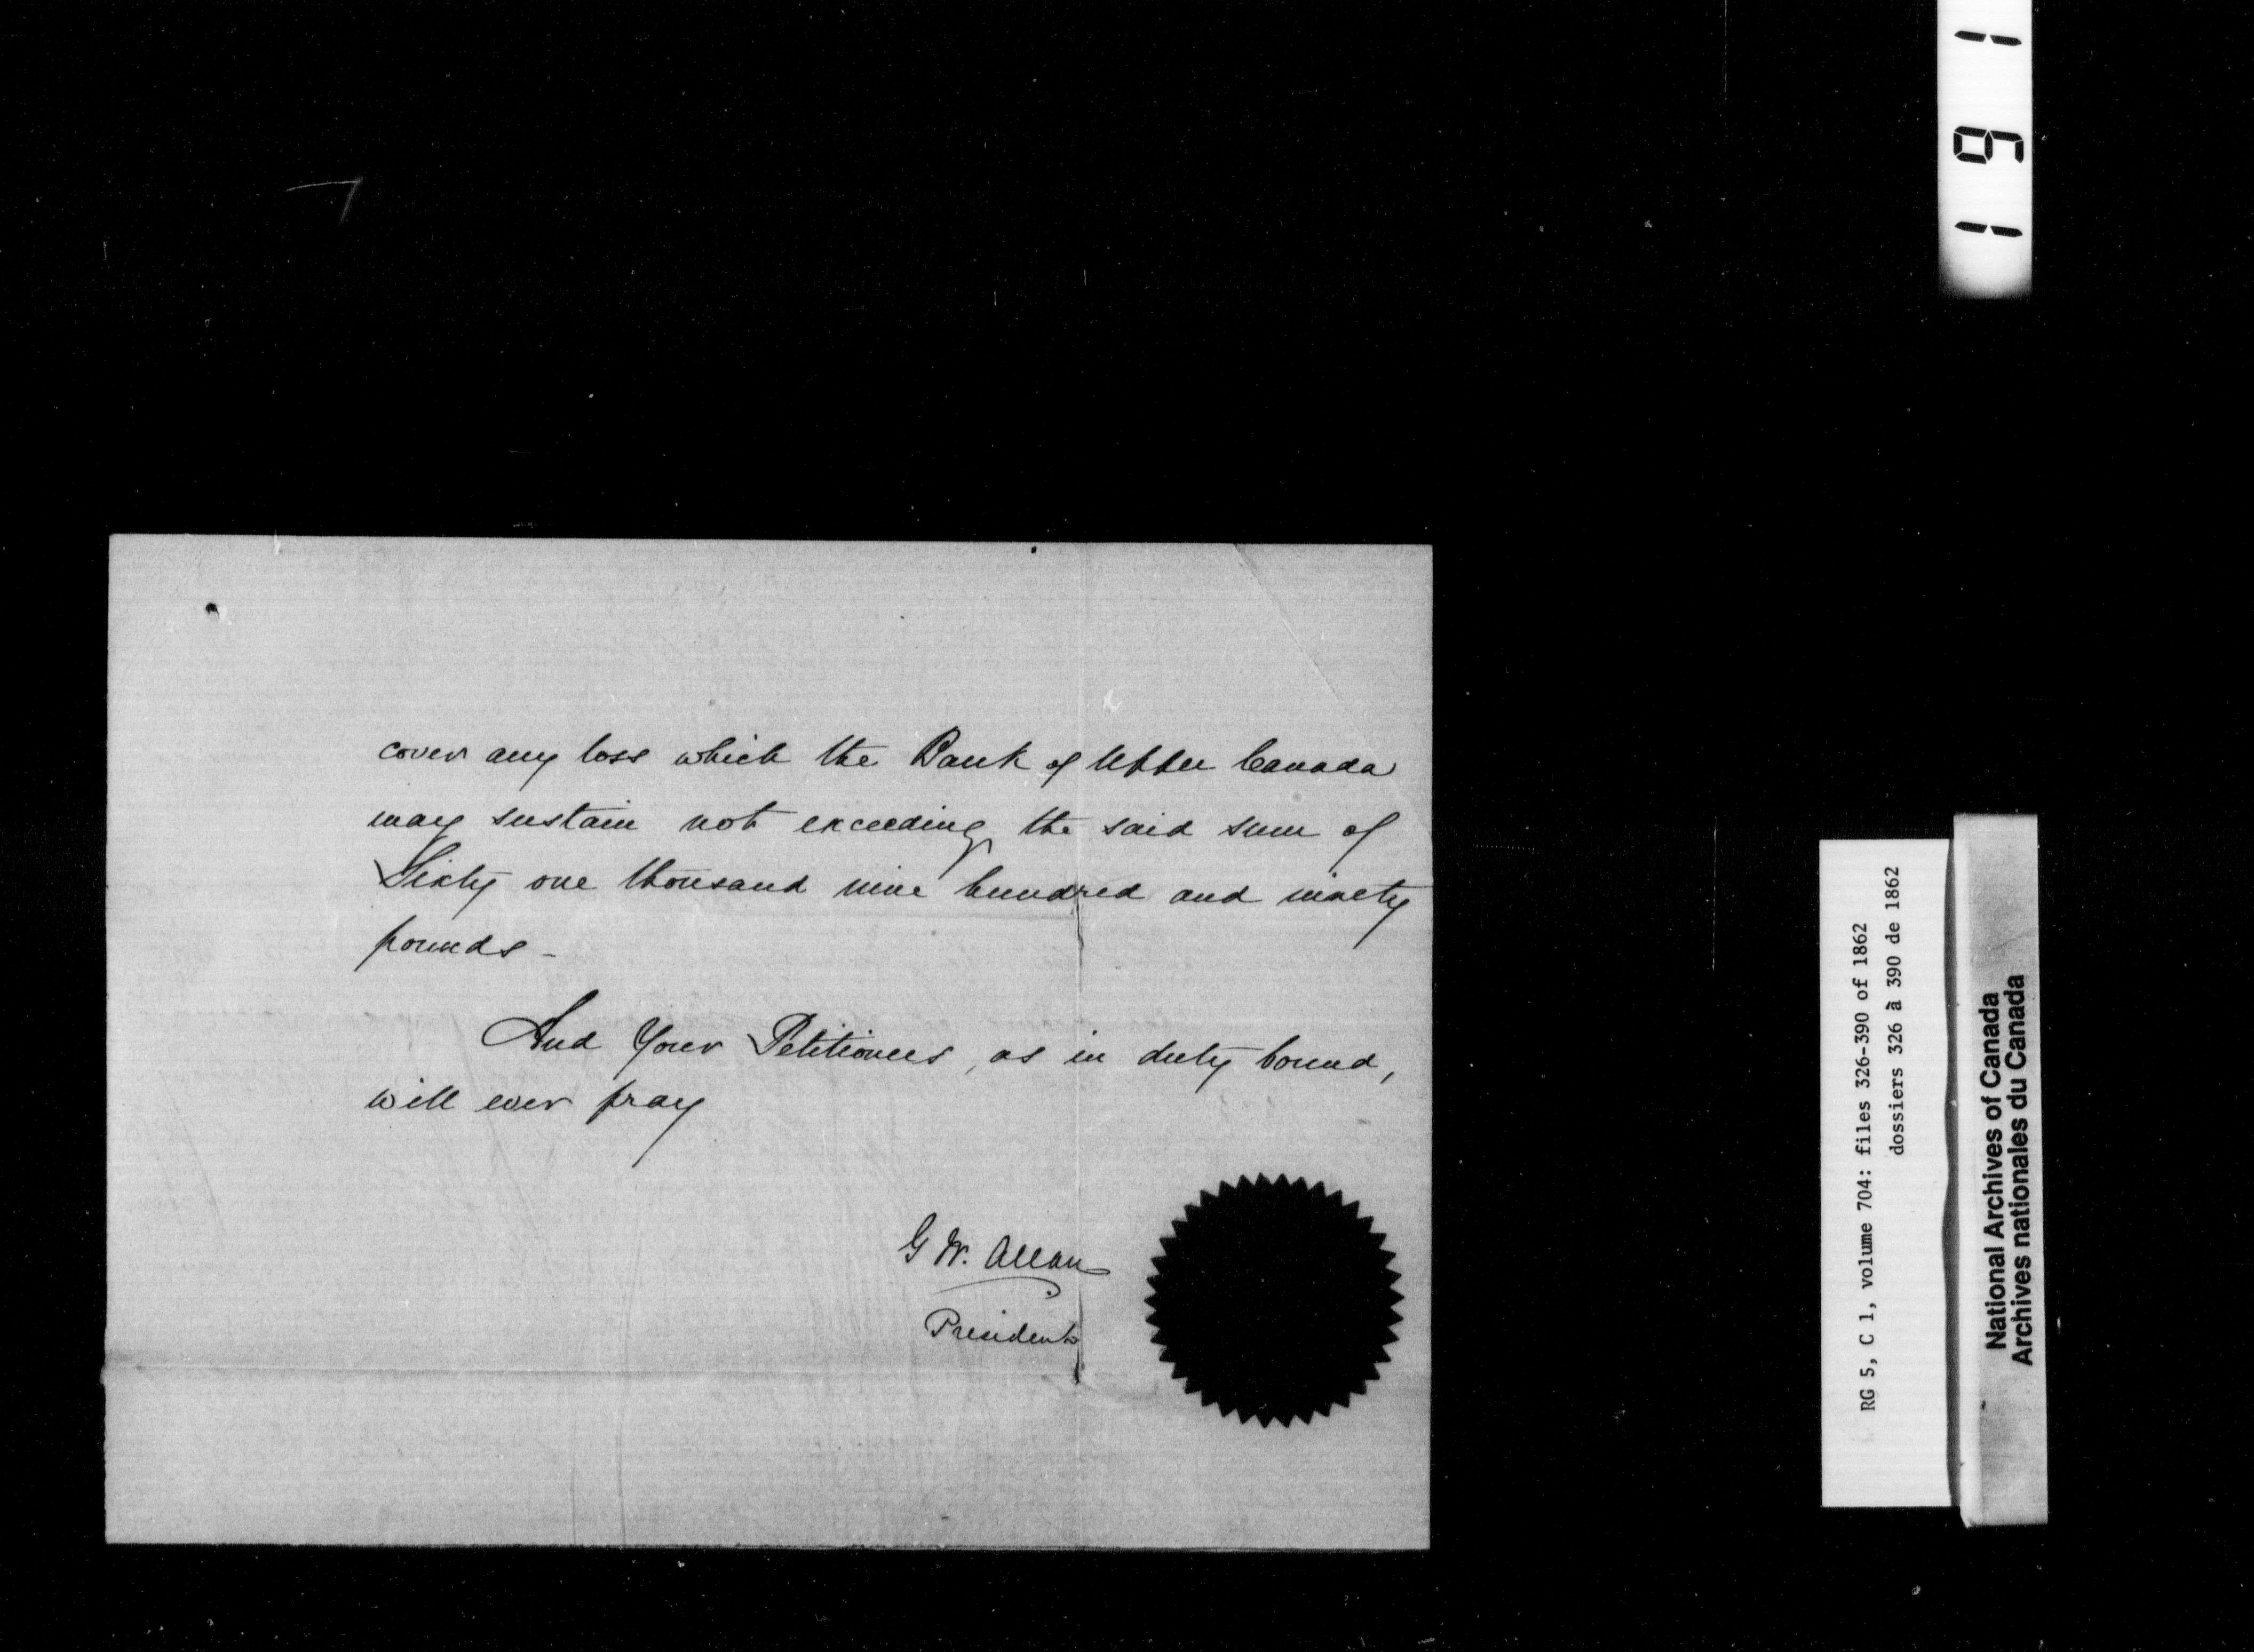 cover any loss which the Bank of Upper Canada
may sustain not exceeding the said sum of
Sixty one thousand nine hundred and ninety
pounds -
And Your Petitioners, as in duty bound,
will ever pray
G W. Allan
President
1191
RG 5, C 1, volume 704: files 326-390 of 1862
dossiers 326 à 390 de 1862
National Archives of Canada
Archives nationales du Canada